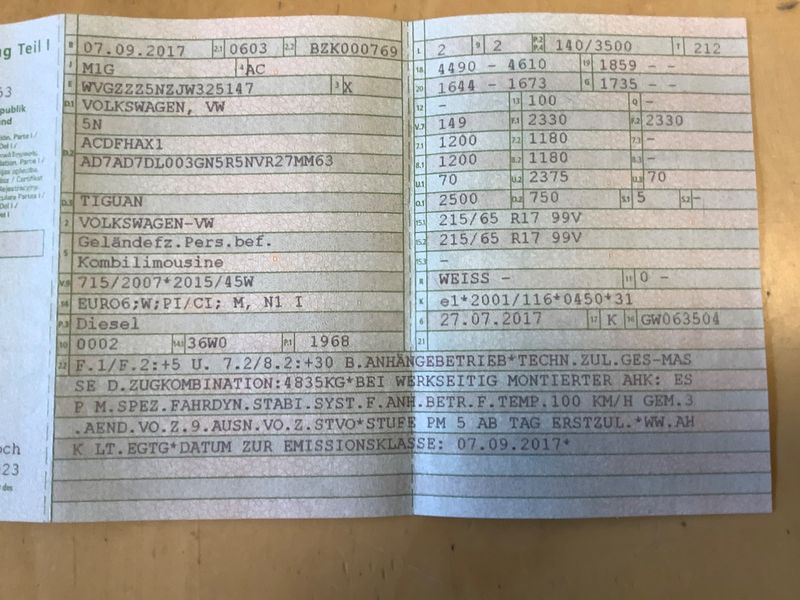 ng Teil I
63
publik
and
och
23
B 07.09.2017 2.1 0603 2.2 BZK000769
J M1G 4 AC
E WVGZZZ5NZJW325147 3 X
D.1 VOLKSWAGEN, VW
5N
D.2 ACDFHAX1
AD7AD7DL003GN5R5NVR27MM63
D.3 TIGUAN
2 VOLKSWAGEN-VW
5 Geländefz.Pers.bef.
Kombilimousine
V.9 715/2007*2015/45W
14 EURO6;W;PI/CI; M, N1 I
P.3 Diesel
10 0002 14.1 36W0 P.1 1968
L 2 9 2 P.2 P.4 140/3500 T 212
18 4490 - 4610 19 1859 - -
20 1644 - 1673 G 1735 - -
12 - 13 100 Q -
V.7 149 F.1 2330 F.2 2330
7.1 1200 7.2 1180 7.3 -
8.1 1200 8.2 1180 8.3 -
U.1 70 U.2 2375 U.3 70
O.1 2500 O.2 750 S.1 5 S.2 -
15.1 215/65 R17 99V
15.2 215/65 R17 99V
15.3 -
R WEISS - 11 0 -
K e1*2001/116*0450*31
6 27.07.2017 17 K 16 GW063504
21
22 F.1/F.2:+5 U. 7.2/8.2:+30 B.ANHÄNGEBETRIEB*TECHN.ZUL.GES-MAS
SE D.ZUGKOMBINATION:4835KG*BEI WERKSEITIG MONTIERTER AHK: ES
P M.SPEZ.FAHRDYN.STABI.SYST.F.ANH.BETR.F.TEMP.100 KM/H GEM.3
.AEND.VO.Z.9.AUSN.VO.Z.STVO*STUFE PM 5 AB TAG ERSTZUL.*WW.AH
K LT.EGTG*DATUM ZUR EMISSIONSKLASSE: 07.09.2017*